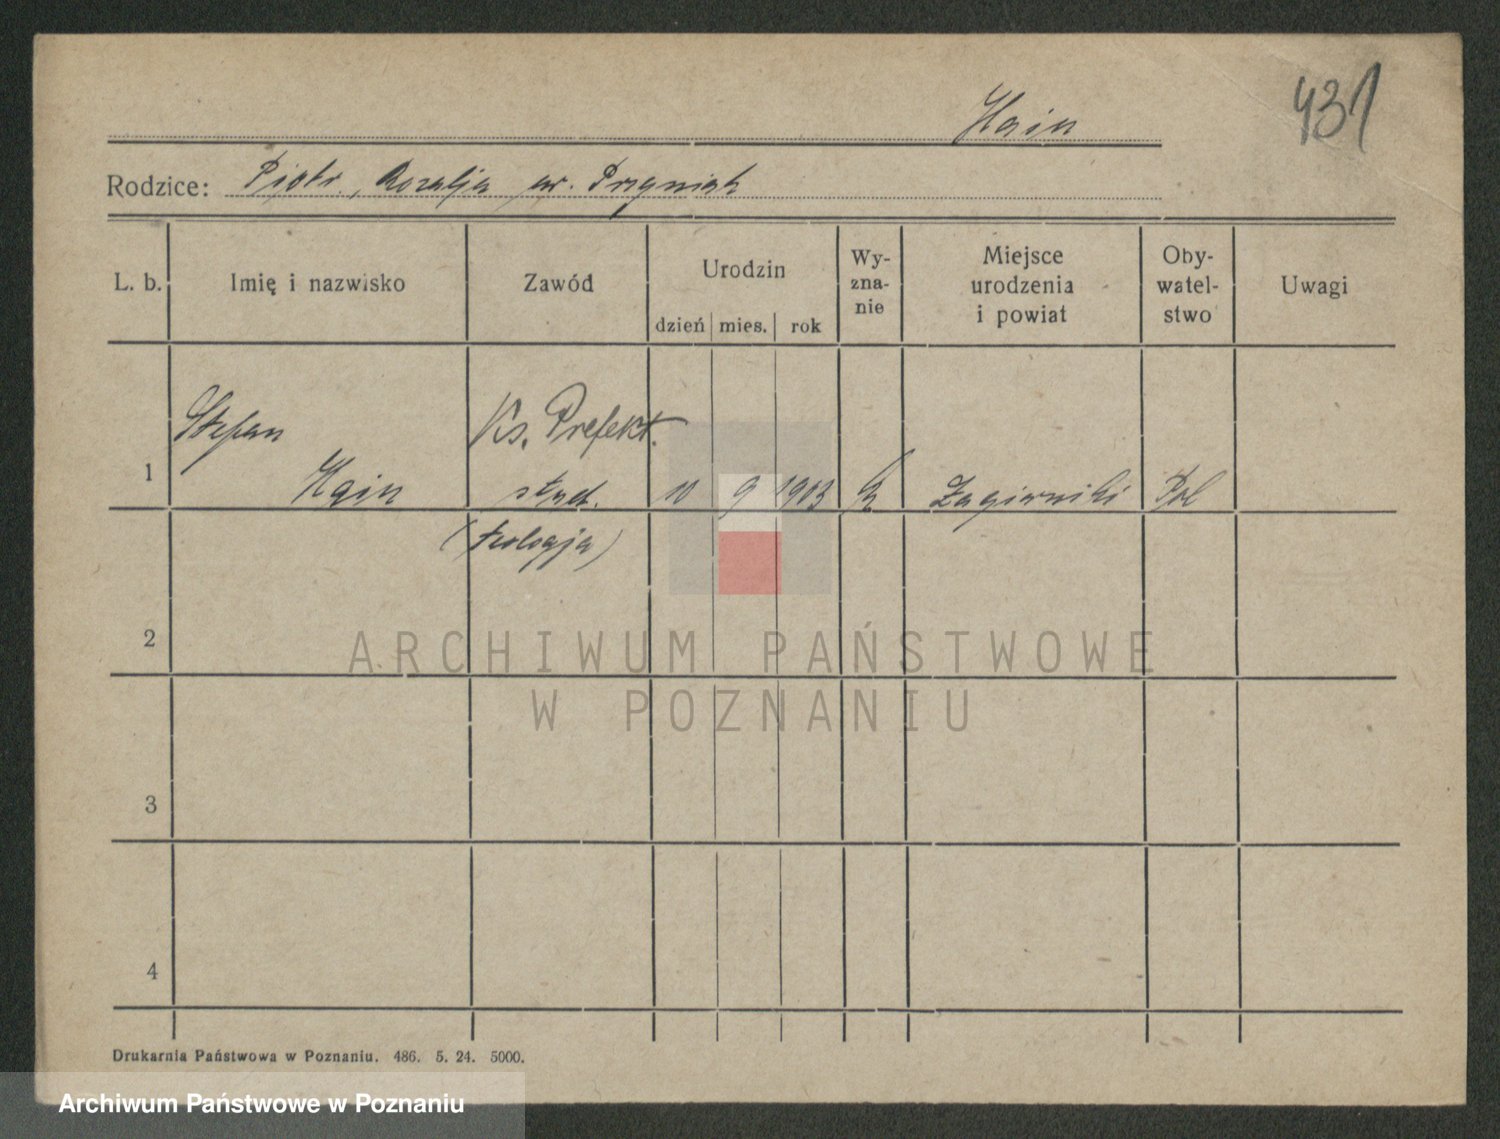 431
Hain
Rodzice: Piotr, Rozalja ur. Przyniak
L. b. Imię i nazwisko Zawód Urodzin dzień mies. rok Wy-zna-nie Miejsce urodzenia i powiat Oby-watel-stwo Uwagi
Stefan Ks. Prefekt.
1 Hain stud. 10 9 1903 k Zagórniki Pol
(teologja)
2
ARCHIWUM PAŃSTWOWE
W POZNANIU
3
4
Drukarnia Państwowa w Poznaniu. 486. 5. 24. 5000.
Archiwum Państwowe w Poznaniu